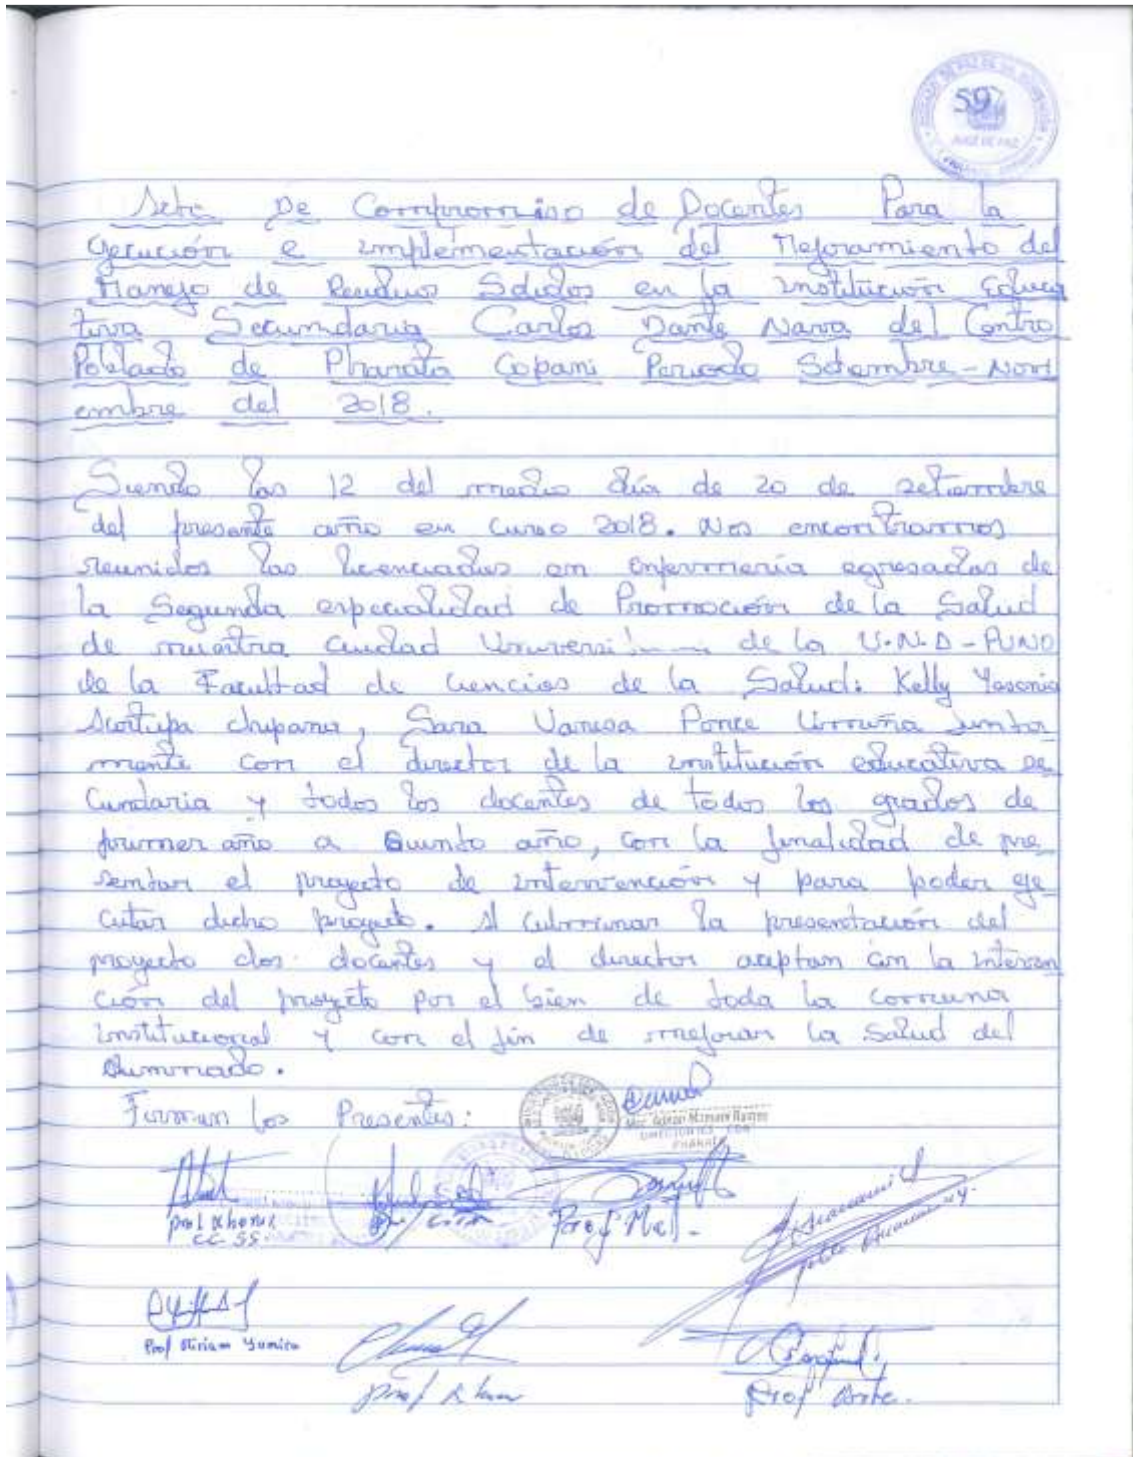 59
JUEZ DE PAZ
Acta De Compromiso de Docentes Para la
Ejecución e implementación del Mejoramiento del
Manejo de Residuos Solidos en la institución Educa
tiva Secundaria Carlos Dante Nava del Centro
Poblado de Pharata Copani Periodo Setiembre - Novi
embre del 2018.
Siendo las 12 del medio día de 20 de setiembre
del presente año en curso 2018. Nos encontramos
reunidos las licenciadas en enfermería egresadas de
la Segunda especialidad de Promoción de la Salud
de nuestra ciudad de la U.N.A - PUNO
de la Facultad de ciencias de la Salud: Kelly Yesenia
chipana, Sara Vanesa Ponce Junta
mente con el director de la institución educativa se
cundaria y todos los docentes de todos los grados de
primer año a Quinto año, con la finalidad de pre
sentar el proyecto de intervención y para poder eje
cutar dicho proyecto. Al culminar la presentación del
proyecto los docentes y el director aceptan con la interven
ción del proyecto por el bien de toda la comuna
institucional y con el fin de mejorar la salud del
alumnado.
Firman los Presentes:
Adrian Mamani Ramos
DIRECTOR
PHARATA
CC.SS.
Prof Mat.
Prof Miriam Yumira
Prof
Prof Arte.